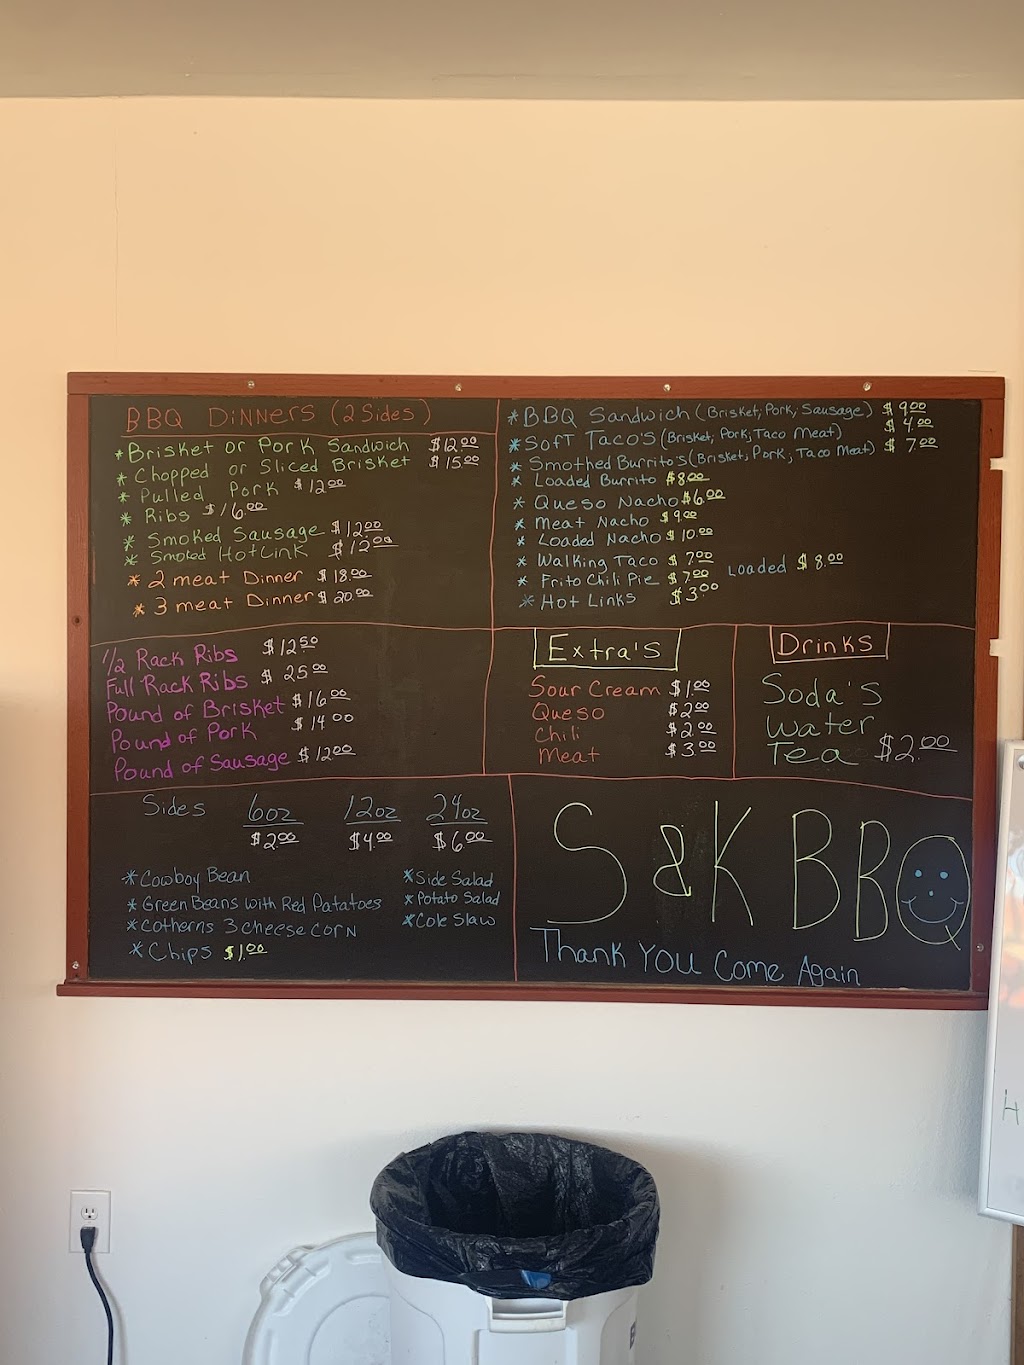 BBQ DiNNERS (2 Sides)
*Brisket or Pork Sandwich $12.00
* Chopped or Sliced Brisket $15.00
* Pulled Pork $12.00
* Ribs $16.00
* Smoked Sausage $12.00
* Smoked Hot Link $12.00
* 2 meat Dinner $18.00
* 3 meat Dinner $20.00
*BBQ Sandwich (Brisket, Pork, Sausage) $9.00
*Soft Taco's (Brisket, Pork, Taco Meat) $4.00
* Smothed Burrito's (Brisket, Pork, Taco Meat) $7.00
* Loaded Burrito $8.00
* Queso Nacho $6.00
* Meat Nacho $9.00
* Loaded Nacho $10.00
* Walking Taco $7.00 Loaded $8.00
* Frito Chili Pie $7.00
* Hot Links $3.00
1/2 Rack Ribs $12.50
Full Rack Ribs $25.00
Pound of Brisket $16.00
Pound of Pork $14.00
Pound of Sausage $12.00
Extra's
Sour Cream $1.00
Queso $2.00
Chili $2.00
Meat $3.00
Drinks
Soda's
Water
Tea $2.00
Sides 6oz 12oz 24oz
$2.00 $4.00 $6.00
*Cowboy Bean
*Green Beans with Red Patatoes
*Cotherns 3 cheese corn
*Chips $1.00
*Side Salad
*Potato Salad
*Cole Slaw
S&K BBQ
Thank You Come Again
H